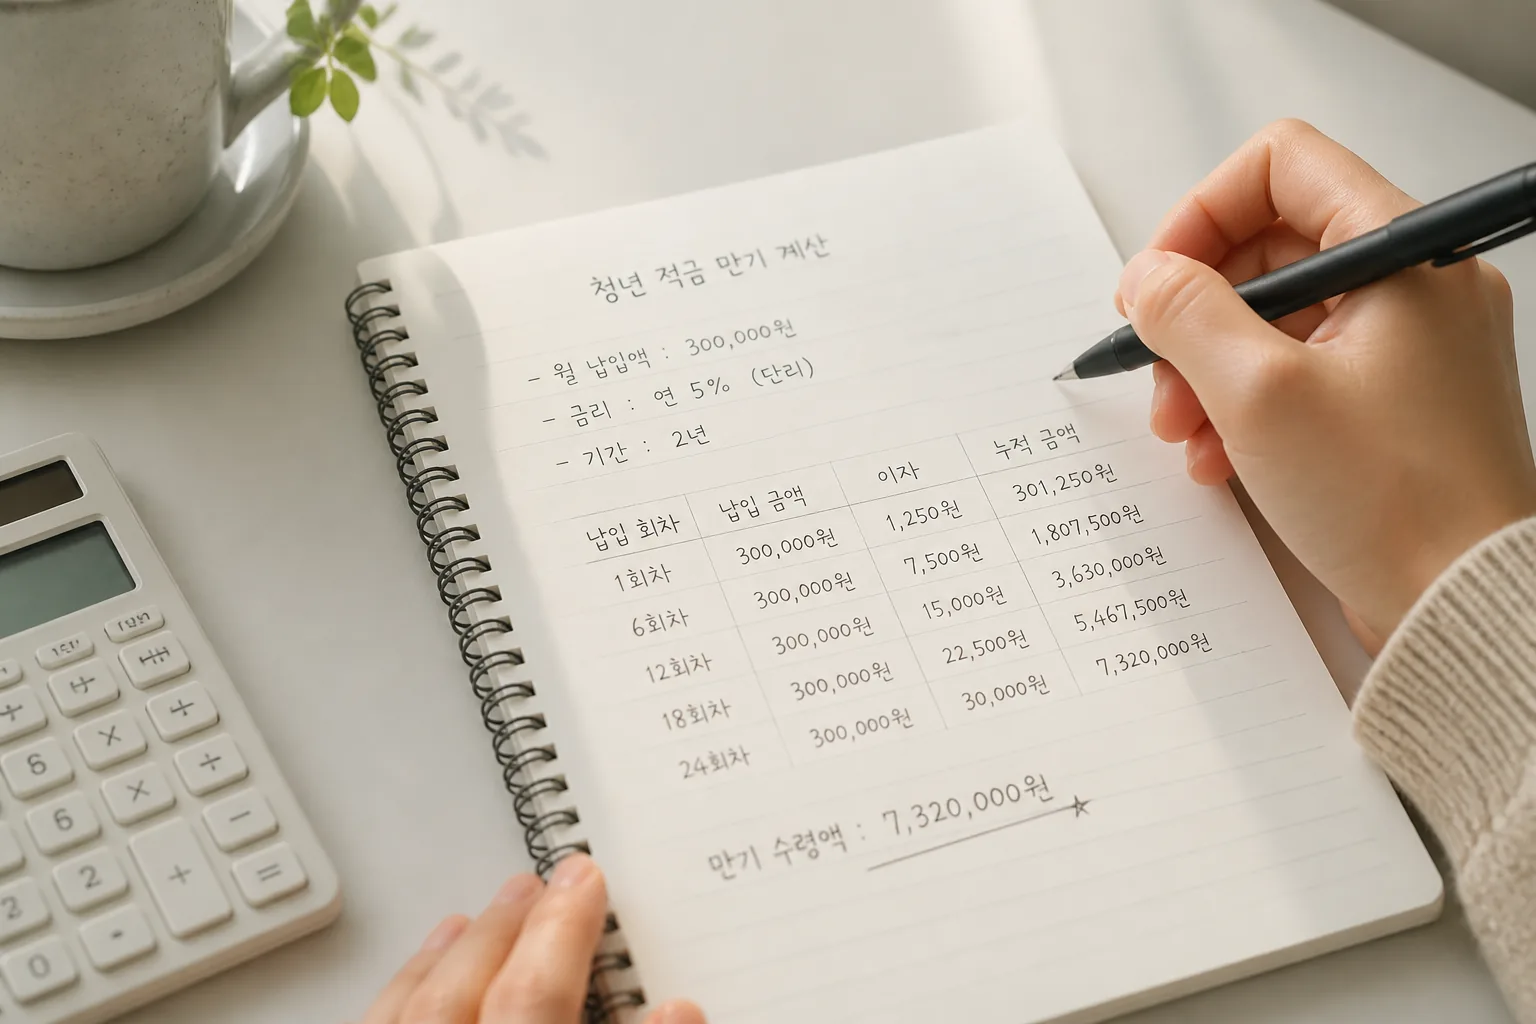 청년 적금 만기 계산
- 월 납입액 : 300,000원
- 금리 : 연 5% (단리)
- 기간 : 2년
납입 회차 납입 금액 이자 누적 금액
1회차 300,000원 1,250원 301,250원
6회차 300,000원 7,500원 1,807,500원
12회차 300,000원 15,000원 3,630,000원
18회차 300,000원 22,500원 5,467,500원
24회차 300,000원 30,000원 7,320,000원
만기 수령액 : 7,320,000원
6 × ÷
6 × −
2 + =
2 -
0